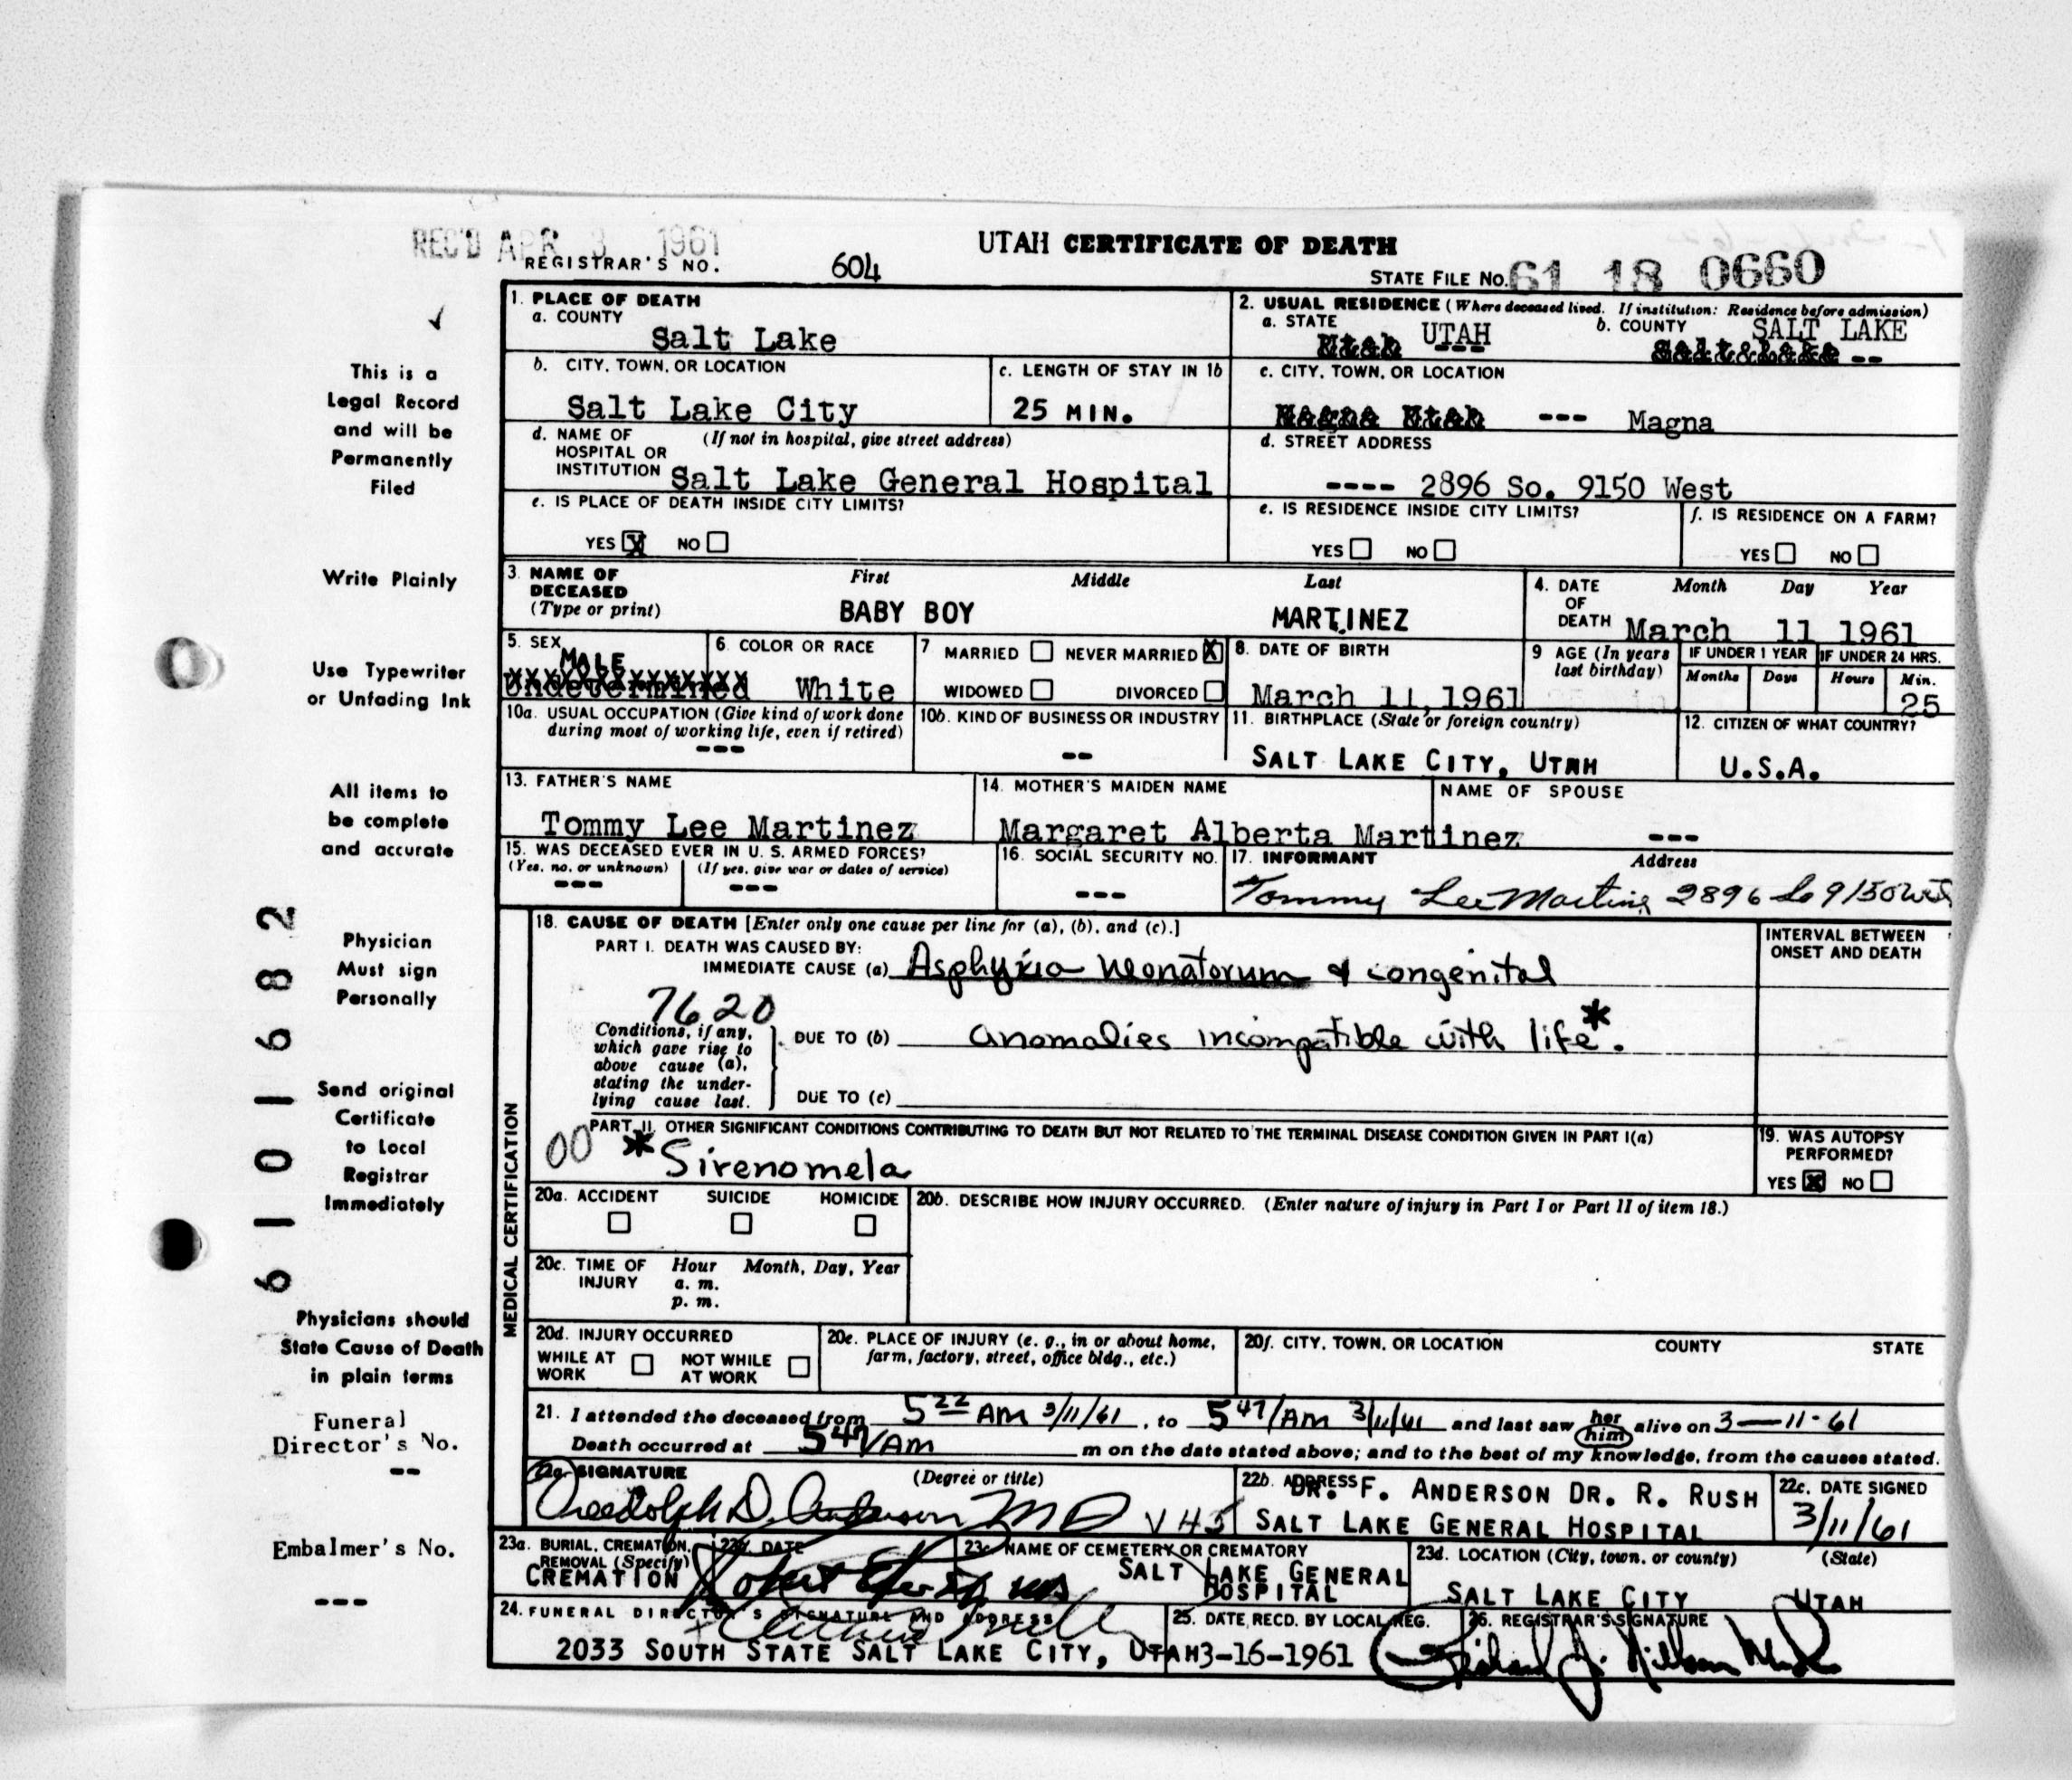 REC'D APR 3 1961
UTAH CERTIFICATE OF DEATH
REGISTRAR'S NO. 604
STATE FILE NO. 61 18 0660
This is a
Legal Record
and will be
Permanently
Filed
Write Plainly
Use Typewriter
or Unfading Ink
All items to
be complete
and accurate
Physician
Must sign
Personally
Send original
Certificate
to Local
Registrar
Immediately
Physicians should
State Cause of Death
in plain terms
Funeral
Director's No.
--
Embalmer's No.
---
6 1 0 1 6 8 2
1. PLACE OF DEATH
a. COUNTY
Salt Lake
2. USUAL RESIDENCE (Where deceased lived. If institution: Residence before admission)
a. STATE Utah UTAH
b. COUNTY SALT LAKE
b. CITY, TOWN, OR LOCATION
Salt Lake City
c. LENGTH OF STAY IN 1b
25 MIN.
c. CITY, TOWN, OR LOCATION
Magna Utah --- Magna
d. NAME OF HOSPITAL OR INSTITUTION (If not in hospital, give street address)
Salt Lake General Hospital
d. STREET ADDRESS
---- 2896 So. 9150 West
e. IS PLACE OF DEATH INSIDE CITY LIMITS?
YES X NO
e. IS RESIDENCE INSIDE CITY LIMITS?
YES NO
f. IS RESIDENCE ON A FARM?
YES NO
3. NAME OF DECEASED (Type or print)
First Middle Last
BABY BOY MARTINEZ
4. DATE OF DEATH Month Day Year
March 11 1961
5. SEX
MALE
Undetermined
6. COLOR OR RACE
White
7 MARRIED NEVER MARRIED X
WIDOWED DIVORCED
8. DATE OF BIRTH
March 11, 1961
9 AGE (In years last birthday)
IF UNDER 1 YEAR
Months Days
IF UNDER 24 HRS.
Hours Min.
25
10a. USUAL OCCUPATION (Give kind of work done during most of working life, even if retired)
---
10b. KIND OF BUSINESS OR INDUSTRY
--
11. BIRTHPLACE (State or foreign country)
SALT LAKE CITY, UTAH
12. CITIZEN OF WHAT COUNTRY?
U.S.A.
13. FATHER'S NAME
Tommy Lee Martinez
14. MOTHER'S MAIDEN NAME
Margaret Alberta Martinez
NAME OF SPOUSE
---
15. WAS DECEASED EVER IN U. S. ARMED FORCES?
(Yes, no, or unknown) (If yes, give war or dates of service)
--- ---
16. SOCIAL SECURITY NO.
---
17. INFORMANT Address
Tommy Lee Martinez 2896 So 9150 West
MEDICAL CERTIFICATION
18. CAUSE OF DEATH [Enter only one cause per line for (a), (b), and (c).]
PART I. DEATH WAS CAUSED BY:
IMMEDIATE CAUSE (a) Asphyxia Neonatorum & congenital
7620
Conditions, if any, which gave rise to above cause (a), stating the underlying cause last.
DUE TO (b) anomalies incompatible with life*.
DUE TO (c)
INTERVAL BETWEEN ONSET AND DEATH
PART II. OTHER SIGNIFICANT CONDITIONS CONTRIBUTING TO DEATH BUT NOT RELATED TO THE TERMINAL DISEASE CONDITION GIVEN IN PART I(a)
00 * Sirenomela
19. WAS AUTOPSY PERFORMED?
YES X NO
20a. ACCIDENT SUICIDE HOMICIDE
20b. DESCRIBE HOW INJURY OCCURRED. (Enter nature of injury in Part I or Part II of item 18.)
20c. TIME OF INJURY Hour Month, Day, Year
a. m.
p. m.
20d. INJURY OCCURRED
WHILE AT WORK NOT WHILE AT WORK
20e. PLACE OF INJURY (e. g., in or about home, farm, factory, street, office bldg., etc.)
20f. CITY, TOWN, OR LOCATION COUNTY STATE
21. I attended the deceased from 5 22 AM 3/11/61, to 5 47/AM 3/11/61 and last saw her him alive on 3-11-61
Death occurred at 5 47 AM m on the date stated above; and to the best of my knowledge, from the causes stated.
SIGNATURE (Degree or title)
D. Anderson MD
22b. ADDRESS DR. F. ANDERSON DR. R. RUSH
SALT LAKE GENERAL HOSPITAL
22c. DATE SIGNED
3/11/61
23a. BURIAL, CREMATION, REMOVAL (Specify)
CREMATION
23b. DATE
23c. NAME OF CEMETERY OR CREMATORY
SALT LAKE GENERAL HOSPITAL
23d. LOCATION (City, town, or county) (State)
SALT LAKE CITY UTAH
24. FUNERAL DIRECTOR'S SIGNATURE AND ADDRESS
2033 SOUTH STATE SALT LAKE CITY, UTAH
25. DATE RECD. BY LOCAL REG.
3-16-1961
26. REGISTRAR'S SIGNATURE